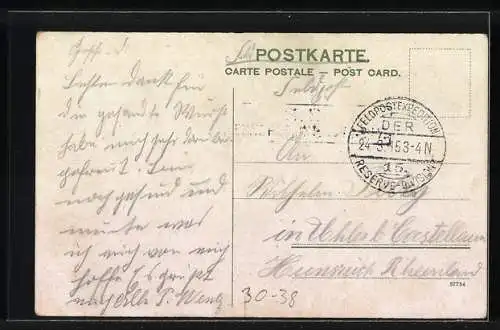 POSTKARTE.
CARTE POSTALE – POST CARD.
Feldpost
FELDPOSTEXPEDITION
DER
24 3 15 3-4 N
15.
RESERVE-DIVISION
An
Wilhelm
in Uhler b. Castellaun
Hunsrück Rheinland
57734
30-38
Besten Dank für
die gesandte Wurst
habe mich sehr darüber
gefreut. Bin
noch gesund und
munter was
ich auch von euch
hoffe Es grüßt
euch alle P. Wentz